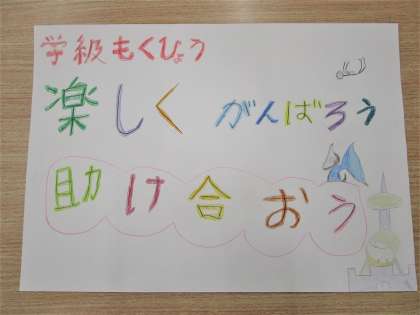 学級もくひょう
楽しく がんばろう
助け合おう